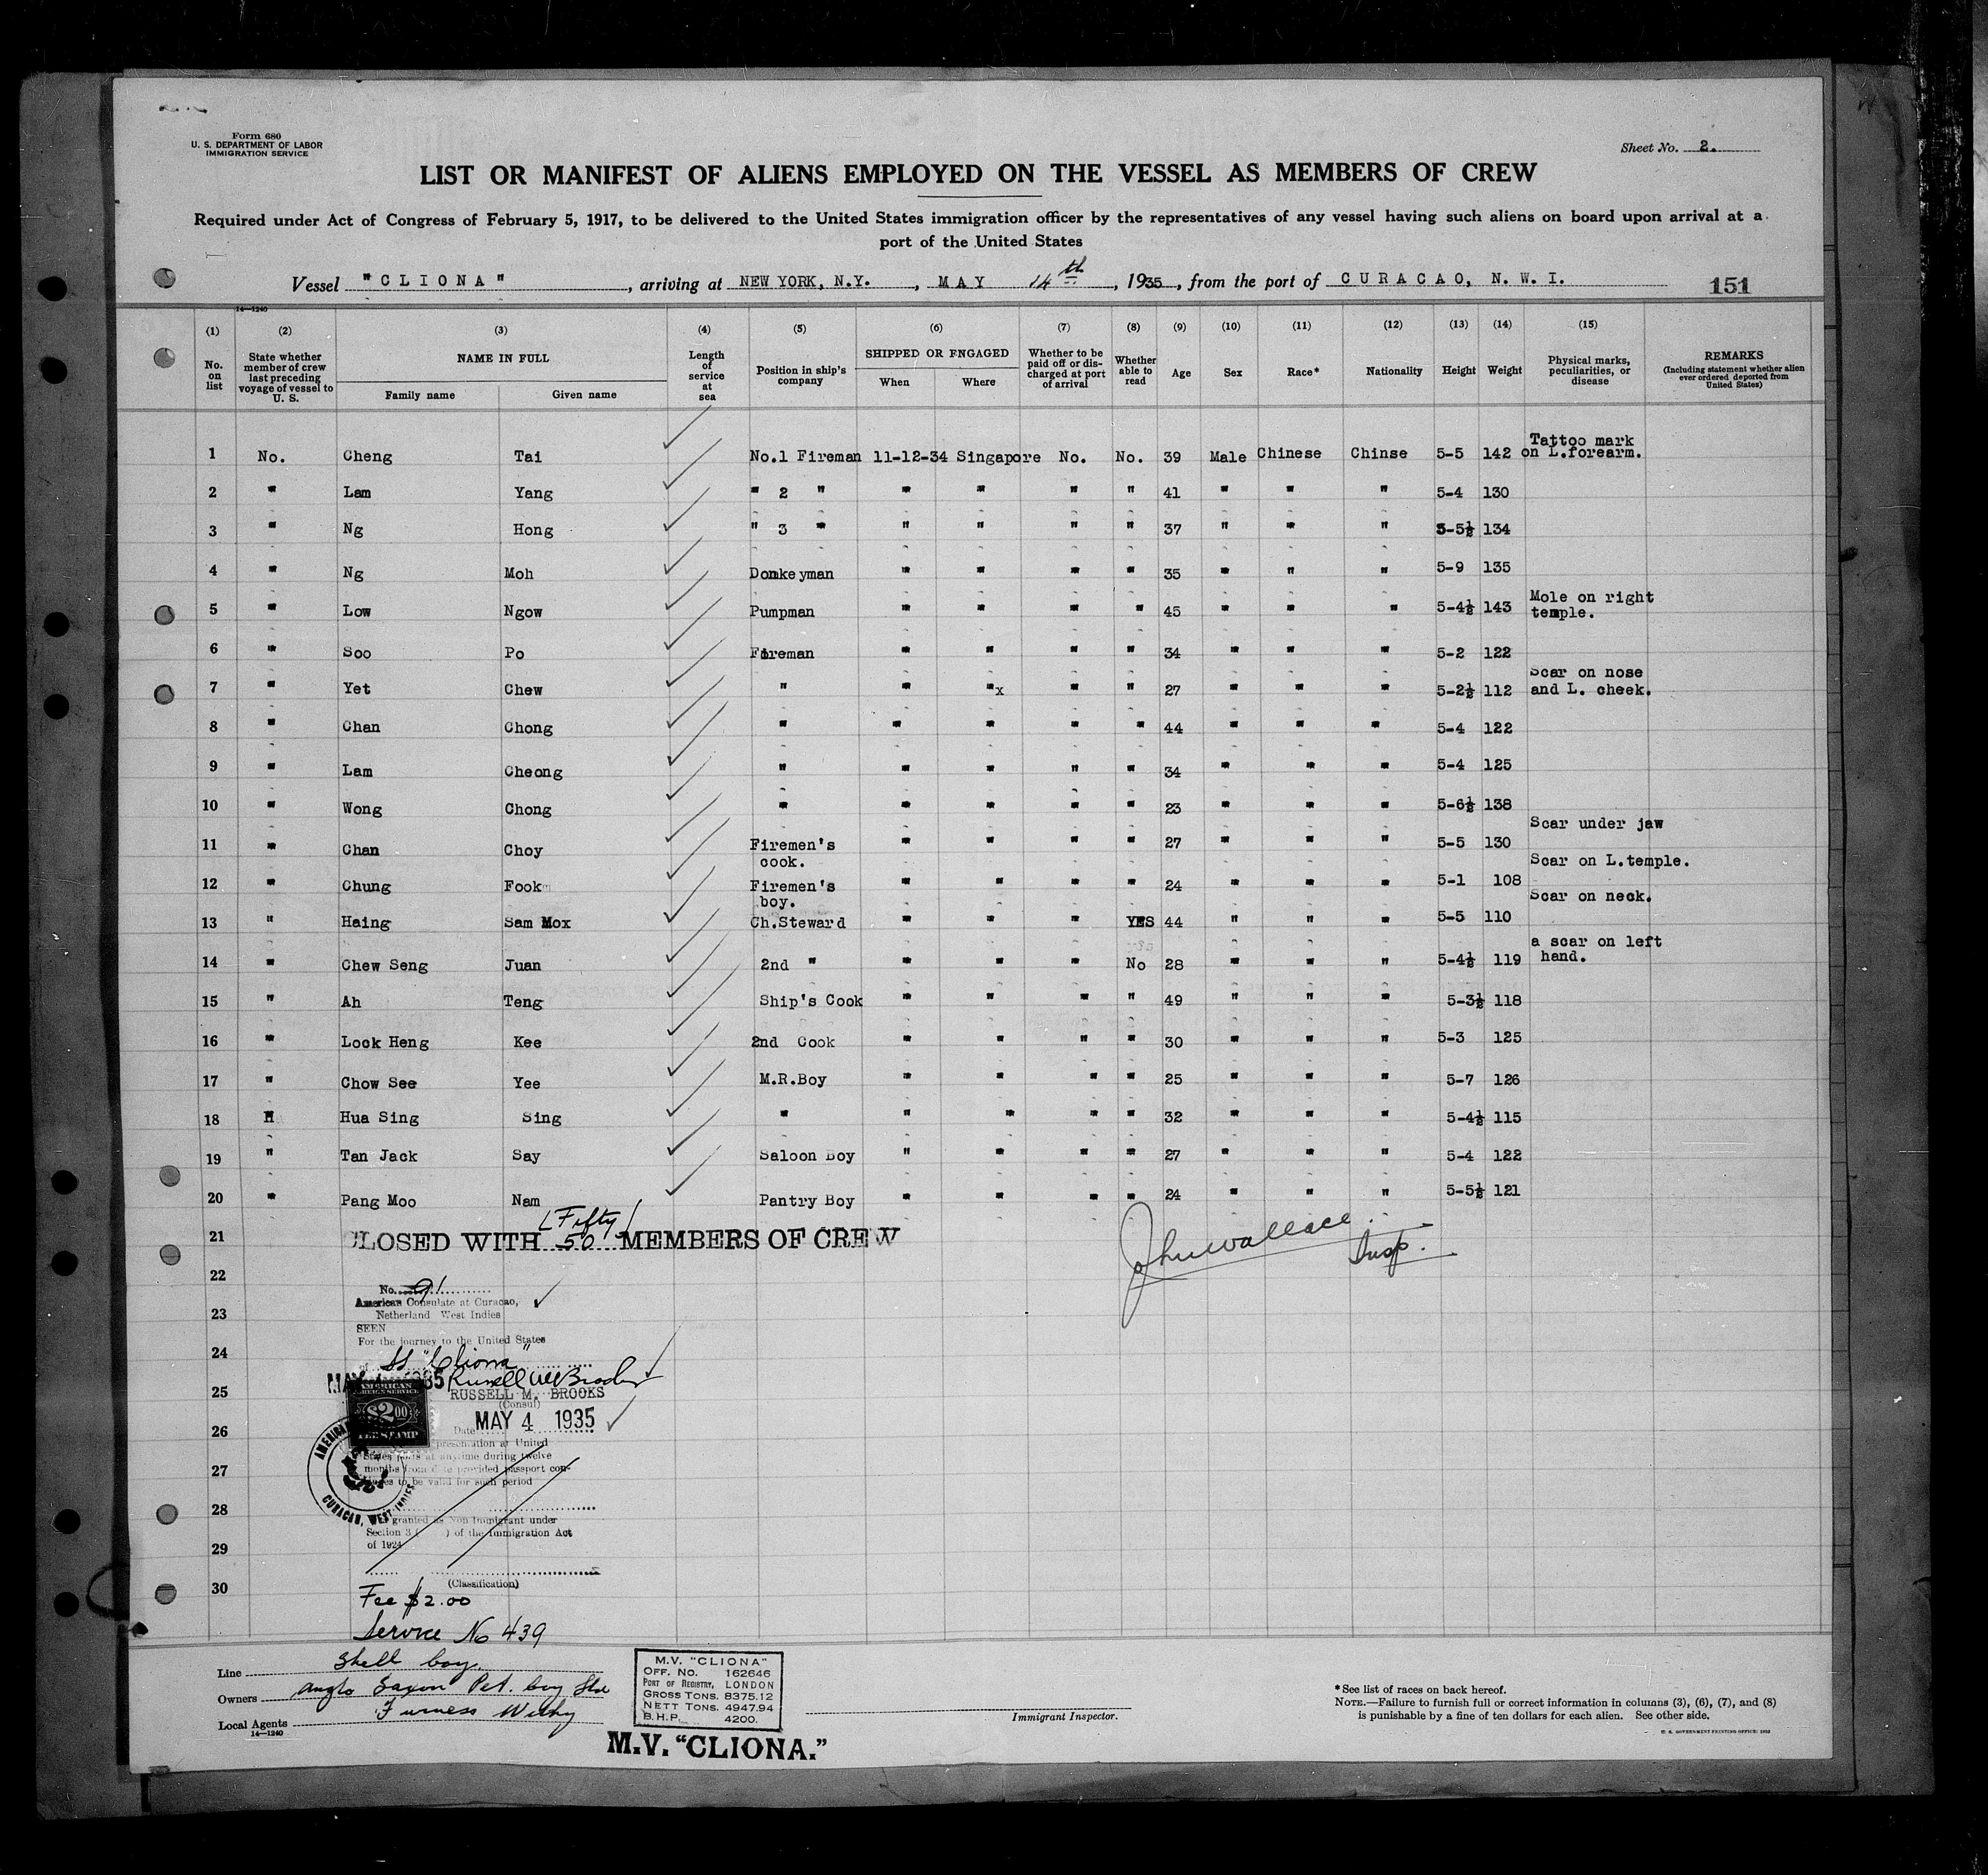 Form 680
U. S. DEPARTMENT OF LABOR
IMMIGRATION SERVICE
Sheet No. 2.
LIST OR MANIFEST OF ALIENS EMPLOYED ON THE VESSEL AS MEMBERS OF CREW
Required under Act of Congress of February 5, 1917, to be delivered to the United States immigration officer by the representatives of any vessel having such aliens on board upon arrival at a
port of the United States
Vessel "CLIONA", arriving at NEW YORK, N.Y., MAY 14th, 1935, from the port of CURACAO, N. W. I. 151
14—1240
(1) (2) (3) (4) (5) (6) (7) (8) (9) (10) (11) (12) (13) (14) (15)
No. on list State whether member of crew last preceding voyage of vessel to U. S. NAME IN FULL Family name Given name Length of service at sea Position in ship's company SHIPPED OR ENGAGED When Where Whether to be paid off or discharged at port of arrival Whether able to read Age Sex Race* Nationality Height Weight Physical marks, peculiarities, or disease REMARKS (Including statement whether alien ever ordered deported from United States)
1 No. Cheng Tai No.1 Fireman 11-12-34 Singapore No. No. 39 Male Chinese Chinse 5-5 142 Tattoo mark on L.forearm.
2 " Lam Yang " 2 " " " " " 41 " " " 5-4 130
3 " Ng Hong " 3 " " " " " 37 " " " 5-5½ 134
4 " Ng Moh Donkeyman " " " " 35 " " " 5-9 135
5 " Low Ngow Pumpman " " " " 45 " " " 5-4½ 143 Mole on right temple.
6 " Soo Po Fireman " " " " 34 " " " 5-2 122
7 " Yet Chew " " "x " " 27 " " " 5-2½ 112 Scar on nose and L. cheek.
8 " Chan Chong " " " " " 44 " " " 5-4 122
9 " Lam Cheong " " " " " 34 " " " 5-4 125
10 " Wong Chong " " " " " 23 " " " 5-6½ 138
11 " Chan Choy Firemen's cook. " " " " 27 " " " 5-5 130 Scar under jaw
12 " Chung Fook Firemen's boy. " " " " 24 " " " 5-1 108 Scar on L.temple.
13 " Haing Sam Mox Ch.Steward " " " YES 44 " " " 5-5 110 Scar on neck.
14 " Chew Seng Juan 2nd " " " " No 28 " " " 5-4½ 119 a scar on left hand.
15 " Ah Teng Ship's Cook " " " " 49 " " " 5-3½ 118
16 " Lock Heng Kee 2nd Cook " " " " 30 " " " 5-3 125
17 " Chow See Yee M.R.Boy " " " " 25 " " " 5-7 126
18 " Hua Sing Sing " " " " " 32 " " " 5-4½ 115
19 " Tan Jack Say Saloon Boy " " " " 27 " " " 5-4 122
20 " Pang Moo Nam Pantry Boy " " " " 24 " " " 5-5½ 121
(Fifty)
21 CLOSED WITH 50 MEMBERS OF CREW John Wallace Insp.
22
No. 91
American Consulate at Curacao,
23 Netherland West Indies
SEEN
For the journey to the United States
24 SS "Cliona"
MAY 1935 Russell M Brooks
25 RUSSELL M. BROOKS
(Consul)
AMERICAN FOREIGN SERVICE $2.00 FEE STAMP
26 Date MAY 4 1935
presentation at United
States ports at anytime during twelve
27 months from date provided passport con-
tinues to be valid for such period
AMERICAN CURACAO, WEST INDIES
28
granted as Non Immigrant under
Section 3 ( ) of the Immigration Act
29 of 1924
30 (Classification)
Fee $2.00
Service No 439
Line Shell Coy.
Owners Anglo Saxon Pet. Coy Ltd
Local Agents Furness Withy
14—1240
M.V. "CLIONA"
OFF. NO. 162646
PORT OF REGISTRY, LONDON
GROSS TONS. 8375.12
NETT TONS. 4947.94
B.H.P. 4200.
M.V. "CLIONA."
Immigrant Inspector.
*See list of races on back hereof.
NOTE.—Failure to furnish full or correct information in columns (3), (6), (7), and (8)
is punishable by a fine of ten dollars for each alien. See other side.
U. S. GOVERNMENT PRINTING OFFICE: 1932